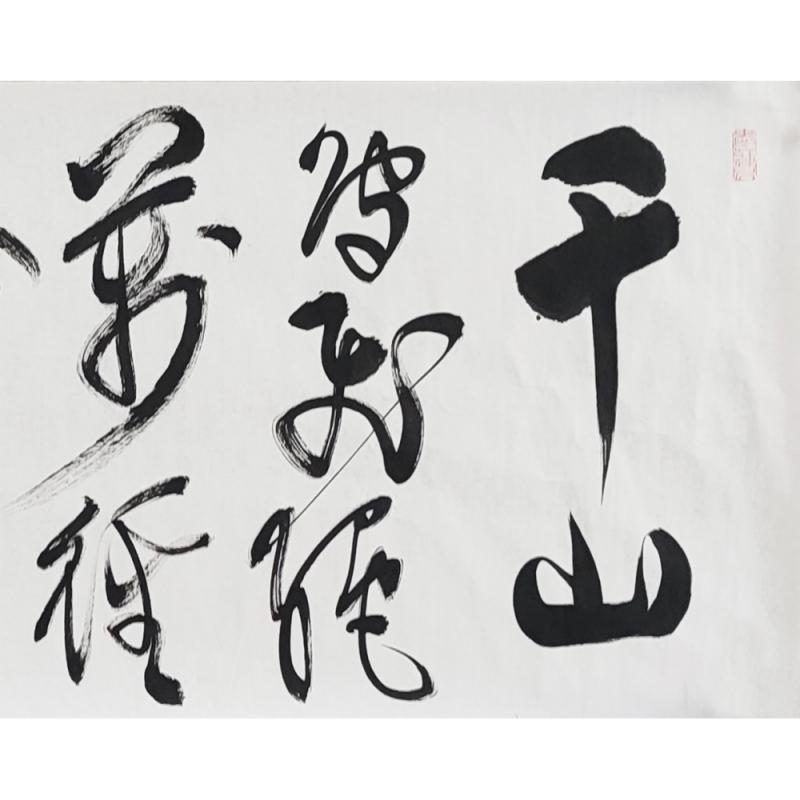 千山
鳥飛絕
萬徑